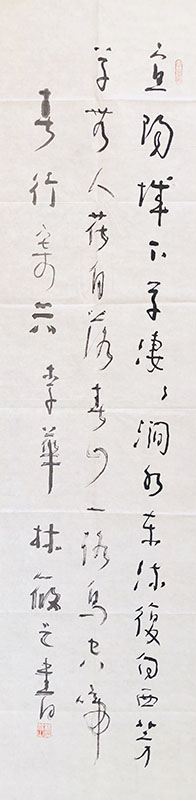 宜陽城下草凄〻澗水東流復向西芳
草無人花自落春山一路鳥空啼
春行寄興 李華 林筱之書